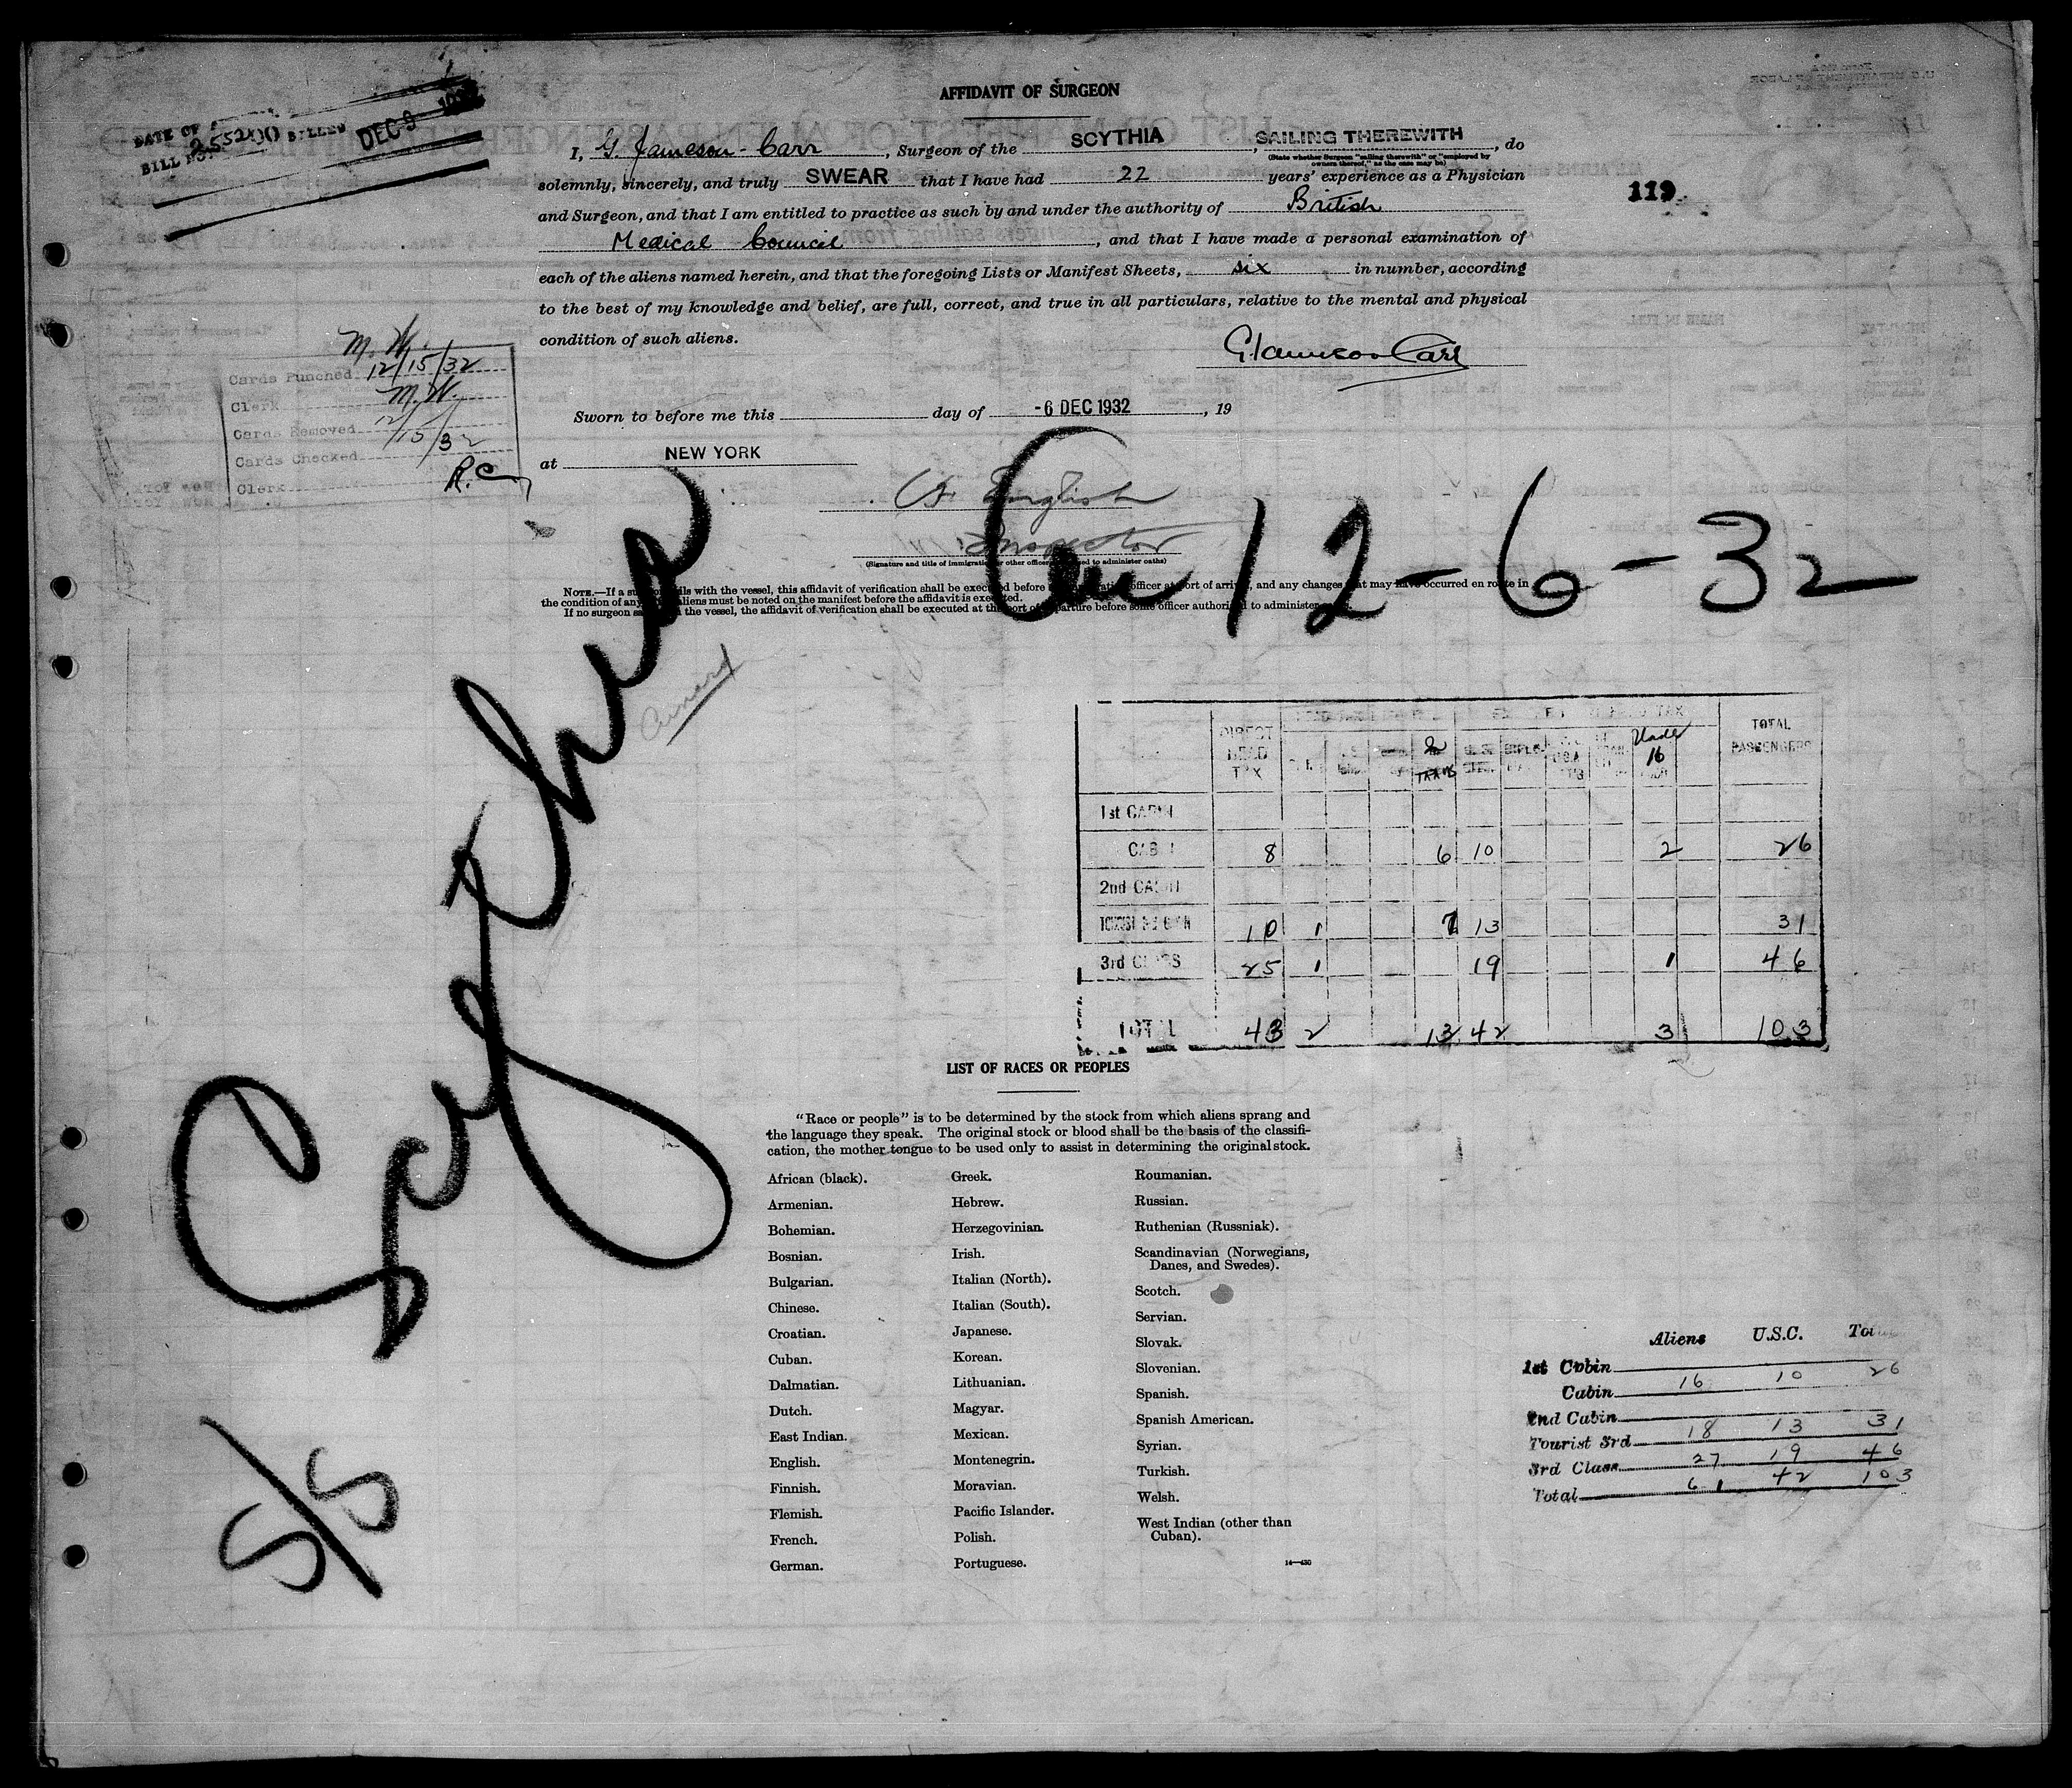 AFFIDAVIT OF SURGEON
DATE OF
BILL NO. BILLED DEC 9
I, G. Jameson-Carr, Surgeon of the SCYTHIA, SAILING THEREWITH, do
(State whether Surgeon "sailing therewith" or "employed by
owners thereof," as the case may be)
solemnly, sincerely, and truly SWEAR that I have had 22 years' experience as a Physician
119
and Surgeon, and that I am entitled to practice as such by and under the authority of British
Medical Council, and that I have made a personal examination of
each of the aliens named herein, and that the foregoing Lists or Manifest Sheets, six in number, according
to the best of my knowledge and belief, are full, correct, and true in all particulars, relative to the mental and physical
condition of such aliens.
G Jameson Carr
M. W.
Cards Punched 12/15/32
Clerk M. W.
Cards Removed 12/15/32
Cards Checked
Clerk R.C.
Sworn to before me this day of -6 DEC 1932, 19
at NEW YORK
English
Inspector
(Signature and title of immigration or other officer to administer oaths)
12-6-32
NOTE.—If a surgeon sails with the vessel, this affidavit of verification shall be executed before immigration officer at port of arrival, and any changes that may have occurred en route in
the condition of any aliens must be noted on the manifest before the affidavit is executed.
If no surgeon sails the vessel, the affidavit of verification shall be executed at the port of departure before some officer authorized to administer
S/S Scythia
Cunard
DIRECT HEAD TAX In TRANS U.S. Under 16 TOTAL PASSENGERS
1st CABIN
CABIN 8 6 10 2 26
2nd CABIN
TOURIST 3rd CABIN 10 1 7 13 31
3rd CLASS 25 1 19 1 46
TOTAL 43 2 13 42 3 103
LIST OF RACES OR PEOPLES
"Race or people" is to be determined by the stock from which aliens sprang and
the language they speak. The original stock or blood shall be the basis of the classifi-
cation, the mother tongue to be used only to assist in determining the original stock.
African (black).
Armenian.
Bohemian.
Bosnian.
Bulgarian.
Chinese.
Croatian.
Cuban.
Dalmatian.
Dutch.
East Indian.
English.
Finnish.
Flemish.
French.
German.
Greek.
Hebrew.
Herzegovinian.
Irish.
Italian (North).
Italian (South).
Japanese.
Korean.
Lithuanian.
Magyar.
Mexican.
Montenegrin.
Moravian.
Pacific Islander.
Polish.
Portuguese.
Roumanian.
Russian.
Ruthenian (Russniak).
Scandinavian (Norwegians,
Danes, and Swedes).
Scotch.
Servian.
Slovak.
Slovenian.
Spanish.
Spanish American.
Syrian.
Turkish.
Welsh.
West Indian (other than
Cuban).
14—430
Aliens U.S.C. Total
1st Cabin
Cabin 16 10 26
2nd Cabin
Tourist 3rd 18 13 31
3rd Class 27 19 46
Total 61 42 103